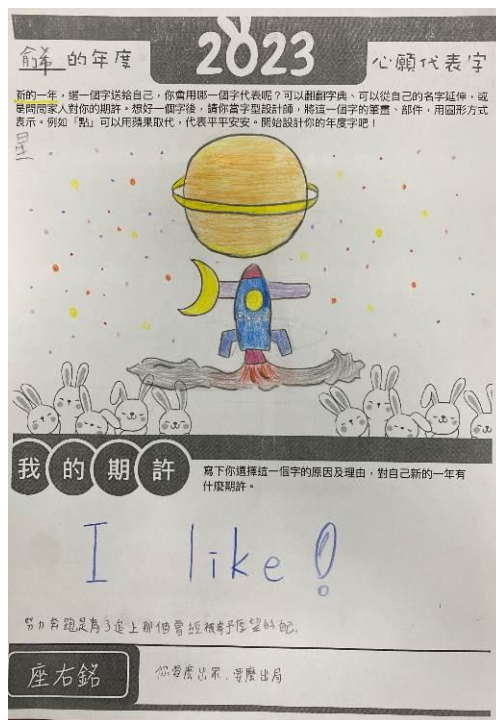 俞希 的年度 2023 心願代表字
新的一年，選一個字送給自己，你會用哪一個字代表呢？可以翻翻字典、可以從自己的名字延伸，或
是問問家人對你的期許。想好一個字後，請你當字型設計師，將這一個字的筆畫、部件，用圖形方式
表示。例如「點」可以用蘋果取代，代表平平安安。開始設計你的年度字吧！
星
我的期許
寫下你選擇這一個字的原因及理由，對自己新的一年有
什麼期許。
I like!
努力奔跑是為了追上那個曾經被寄予厚望的自己.
座右銘
你要麼出眾，要麼出局